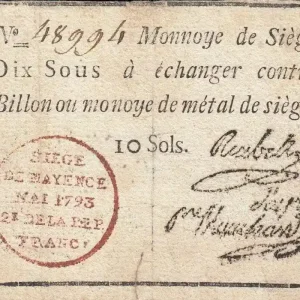 No 48994 Monnoye de Sièg
Dix Sous à échanger cont
Billon ou monoye de métal de sièg
10 Sols.
SIEGE
DE MAYENCE
MAI 1793
2E DE LA REP
FRANC